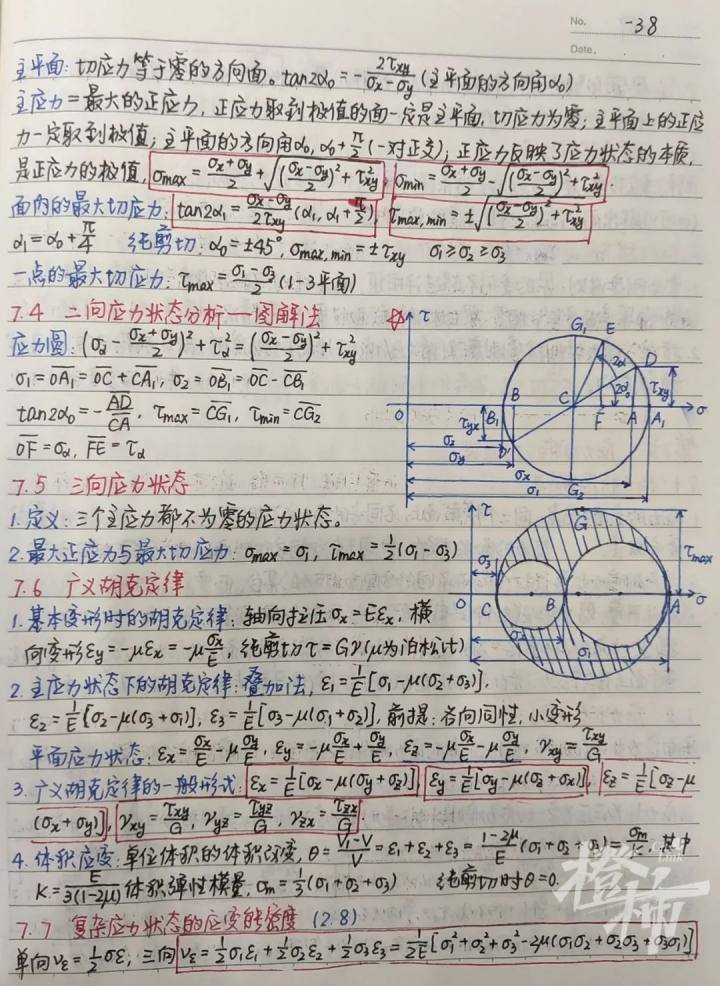 No. -38
Date.
主平面：切应力等于零的方向面。tan2α₀=-2τxy/(σx-σy)(主平面的方向角α₀)
主应力=最大的正应力，正应力取到极值的面一定是主平面，切应力为零；主平面上的正应
力一定取到极值；主平面的方向角α₀, α₀+π/2(一对正交)；正应力反映了应力状态的本质，
是正应力的极值，σmax=(σx+σy)/2+√(((σx-σy)/2)²+τ²xy) σmin=(σx+σy)/2-√(((σx-σy)/2)²+τ²xy).
面内的最大切应力：tan2α₁=(σx-σy)/2τxy(α₁, α₁+π/2), τmax,min=±√(((σx-σy)/2)²+τ²xy)
α₁=α₀+π/4 纯剪切：α₀=±45°, σmax,min=±τxy σ₁≥σ₂≥σ₃
一点的最大切应力：τmax=(σ₁-σ₃)/2(1-3平面)
7.4 二向应力状态分析—图解法
应力圆：(σα-(σx+σy)/2)²+τα²=((σx-σy)/2)²+τ²xy
σ₁=OA₁=OC+CA₁, σ₂=OB₁=OC-CB₁
tan2α₀=-AD/CA, τmax=CG₁, τmin=CG₂
OF=σα, FE=τα
τ G₁ E D 2α 2α₀ τxy
O B₁ B C F A A₁ σ
τyx D' σ₂ σy
σx
σ₁ G₂
7.5 三向应力状态
1.定义：三个主应力都不为零的应力状态。
2.最大正应力与最大切应力：σmax=σ₁, τmax=½(σ₁-σ₃)
τ G τmax
σ₃
O C B A σ
σ₂ σ₁
7.6 广义胡克定律
1.基本变形时的胡克定律：轴向拉压σx=Eεx, 横
向变形εy=-μεx=-μσx/E, 纯剪切τ=Gγ(μ为泊松比)
2.主应力状态下的胡克定律：叠加法，ε₁=1/E[σ₁-μ(σ₂+σ₃)],
ε₂=1/E[σ₂-μ(σ₃+σ₁)], ε₃=1/E[σ₃-μ(σ₁+σ₂)], 前提：各向同性，小变形
平面应力状态：εx=σx/E-μσy/E, εy=-μσx/E+σy/E, εz=-μσx/E-μσy/E, γxy=τxy/G
3.广义胡克定律的一般形式：εx=1/E[σx-μ(σy+σz)], εy=1/E[σy-μ(σz+σx)], εz=1/E[σz-μ
(σx+σy)], γxy=τxy/G, γyz=τyz/G, γzx=τzx/G.
4.体积应变：单位体积的体积改变，θ=(V₁-V)/V=ε₁+ε₂+ε₃=(1-2μ)/E(σ₁+σ₂+σ₃)=σm/K. 其中
K=E/3(1-2μ)体积弹性模量，σm=⅓(σ₁+σ₂+σ₃) 纯剪切时θ=0.
7.7 复杂应力状态的应变能密度 (2.8)
单向vε=½σε, 三向vε=½σ₁ε₁+½σ₂ε₂+½σ₃ε₃=1/2E[σ₁²+σ₂²+σ₃²-2μ(σ₁σ₂+σ₂σ₃+σ₃σ₁)]
橙柿